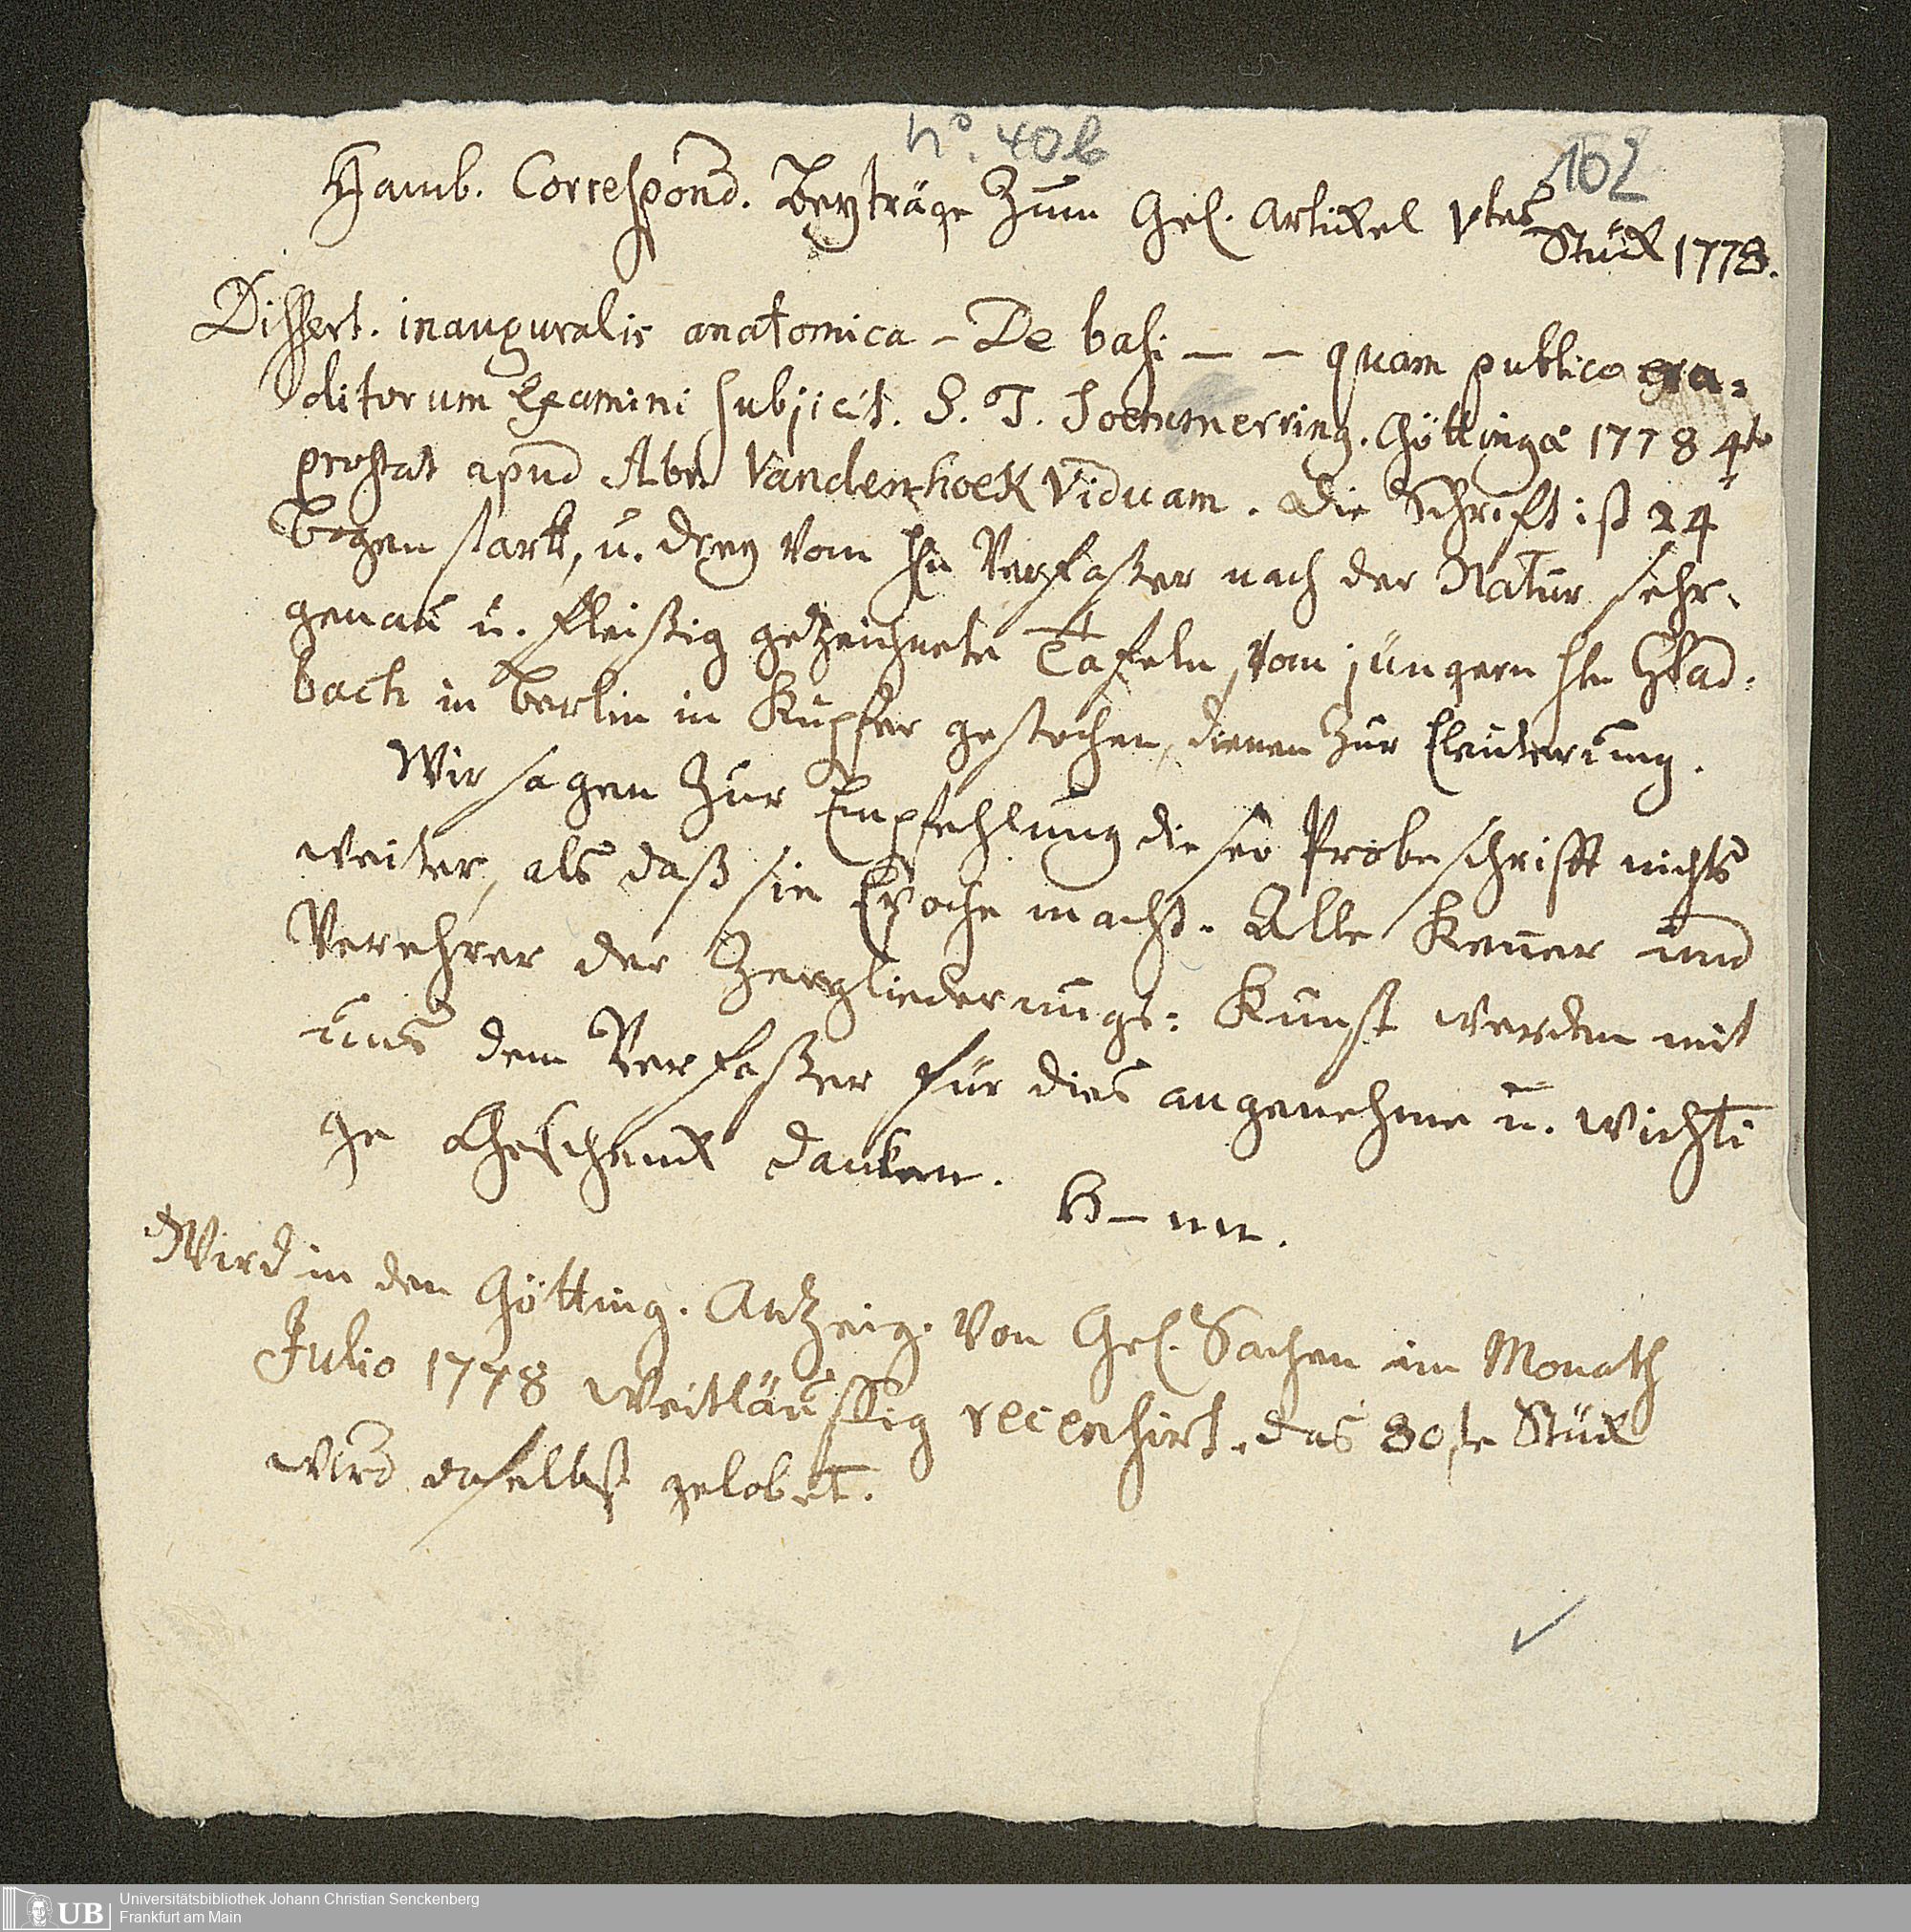 no. 40b
102
Hamb. Correspond. Beyträge zum Gel. Artikel Vtes
Stück 1778.
Dissert. inauguralis anatomica – De basi — — quam publico eru=
ditorum Examini subjicit. S. T. Soemmerring. Göttingæ 1778 4to
prostat apud Abr. Vandenhoek Viduam. Die Schrift ist 24
Bogen stark, u. drey vom Hn Verfaßer nach der Natur sehr
genau u. fleißig gezeichnete Tafeln, vom jüngern Hn Glad=
bach in Berlin in Kupfer gestochen, dienen zur Eleuterung.
Wir sagen zur Empfehlung dieser Probeschrifft nichts
weiter, als daß sie Epoche macht. Alle Kenner und
Verehrer der Zergliederungs= Kunst werden mit
uns dem Verfaßer für dies angenehme u. wichti
ge Geschenk danken.
B – nn.
Wird in den Götting. Anzeig. von Gel. Sachen im Monath
Julio 1778 weitläuffig recensirt. das 80ste Stück
wird daselbst gelobet.
UB
Universitätsbibliothek Johann Christian Senckenberg
Frankfurt am Main